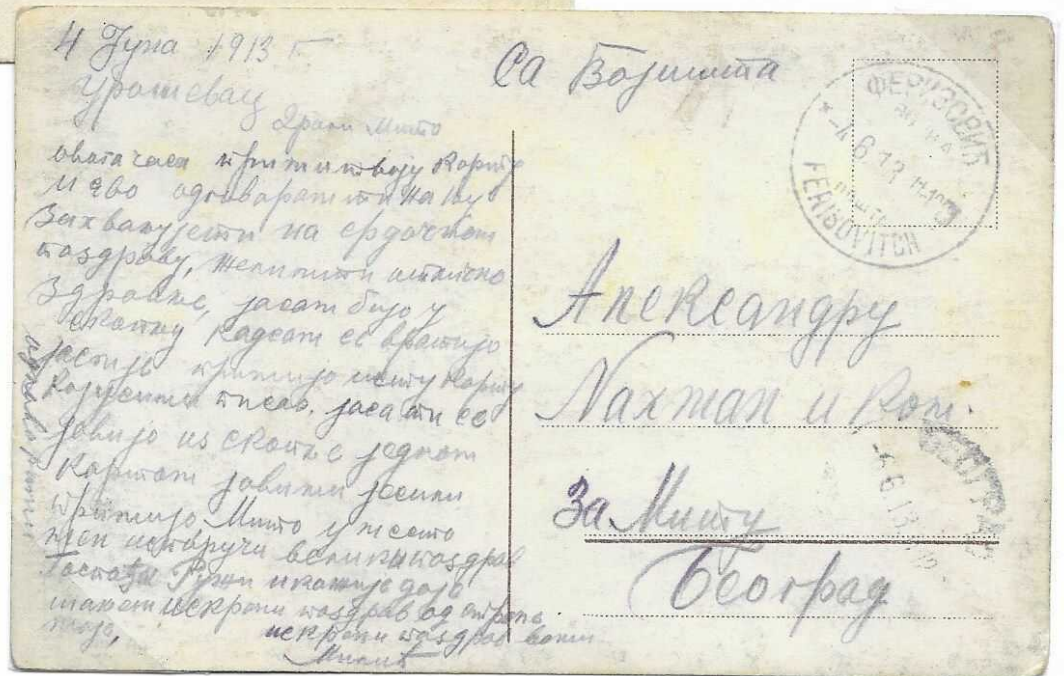 4 Јуна 1913 г
Урошевац
Драги Мито
овога часа прими твоју Карту
и ево одговарам ти на њу
Захваљујем ти на срдачном
поздраву, желим ти отлично
Здравље, јасам бијо у
скопљу кадсам се вратијо
јасмје примијо исту Карту
Којусими писао. јаса ти се
јавијо из скопље једном
Картом јавими јесили
примијо Мито у место
мен испоручи велики поздрав
Госпођи Ружи
искрени поздрав од
мојо,
искрени поздрав
Милић
одговарати
Са Војишта
ФЕРИЗОВИЋ
-4.6.13
FERISOVITCH
Александру
Нахман и Ком.
За Миту
Београд
БЕОГРАД
-4.6.13